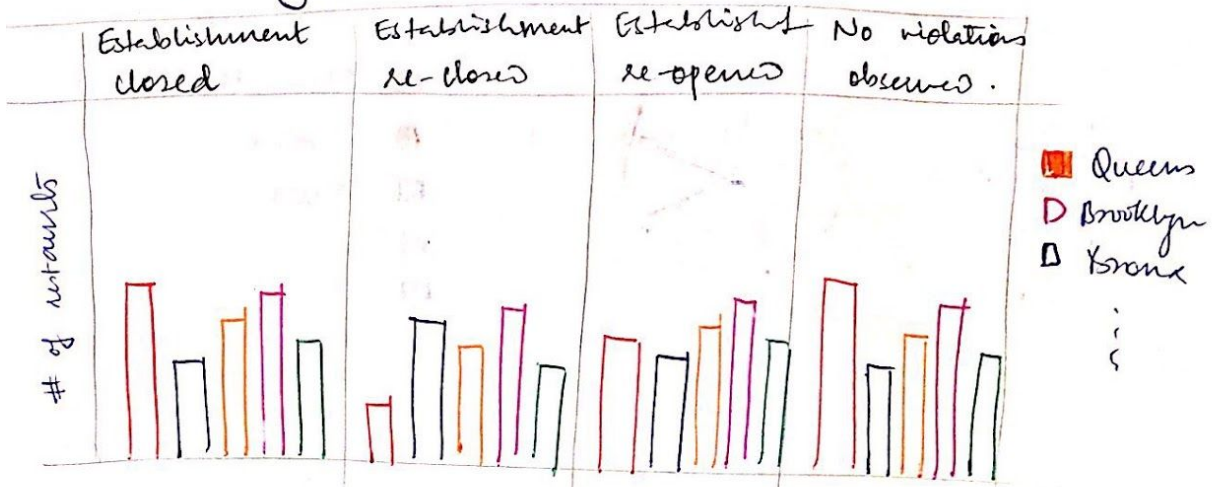 Establishment closed
Establishment re-closed
Establishmt re-opened
No violations observed.
# of restaurants
Queens
Brooklyn
Bronx